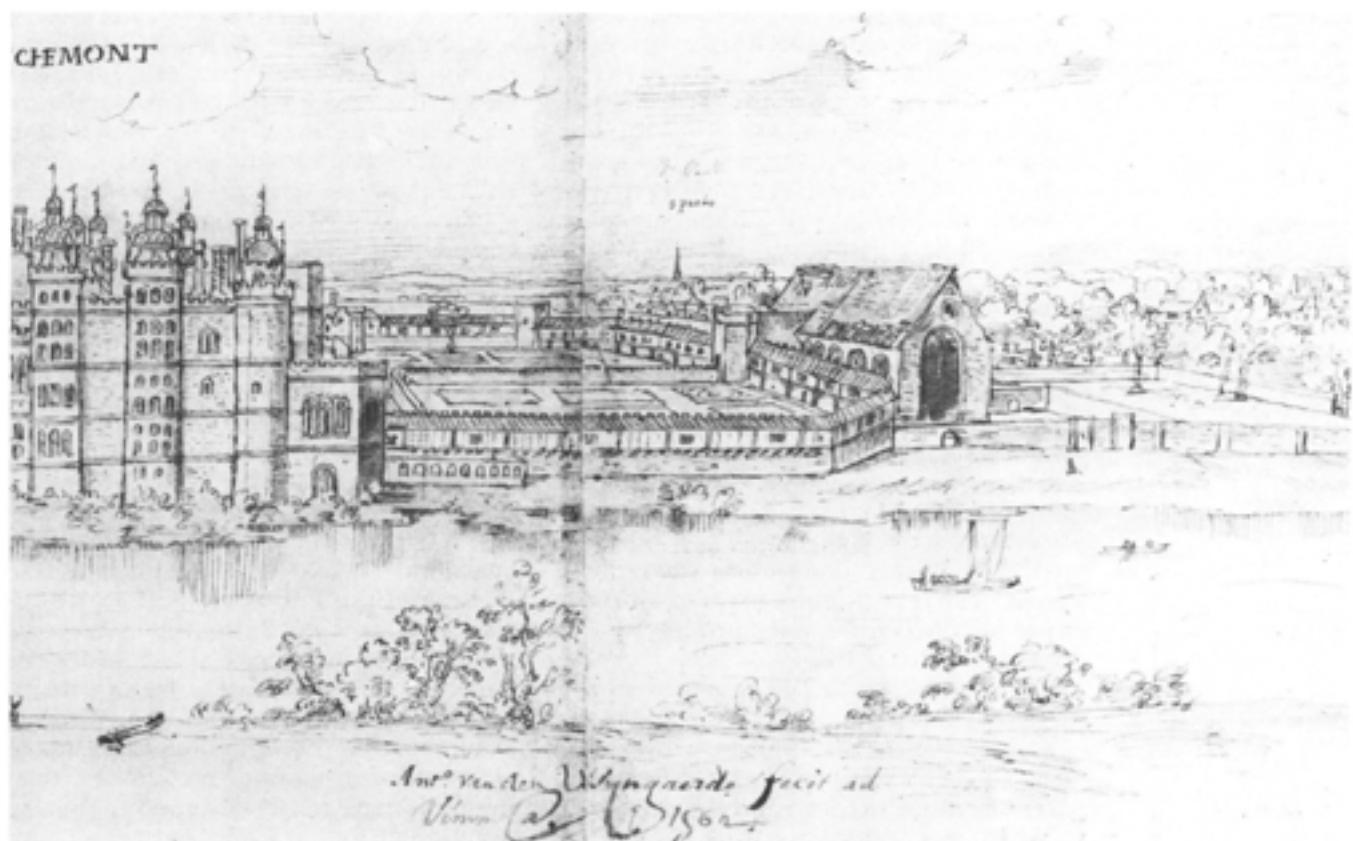 CHEMONT
Ant.º van den Wÿngaerde fecit ad
Vivum 1562